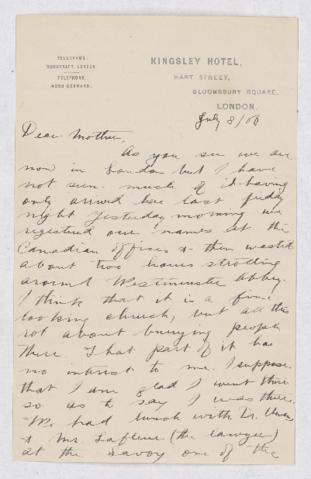 TELEGRAMS,
TELEPHONE,
KINGSLEY HOTEL,
HART STREET,
BLOOMSBURY SQUARE,
LONDON.
July 8/06
Dear Mother,
As you see we are
now in London but I have
not seen much of it having
only arrived here last friday
night. Yesterday morning we
registered our names at the
Canadian offices & then wasted
about two hours strolling
around Westminster Abbey.
I think that it is a fine
looking church, but all this
rot about burying people
there. That part of it has
no interest to me. I suppose
that I am glad I went there
so as to say I was there.
We had lunch with Dr.
& Mr Lafleur (the lawyer)
at the Savoy one of the